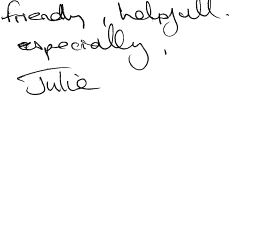 friendly, helpfull.
especially,
Julie